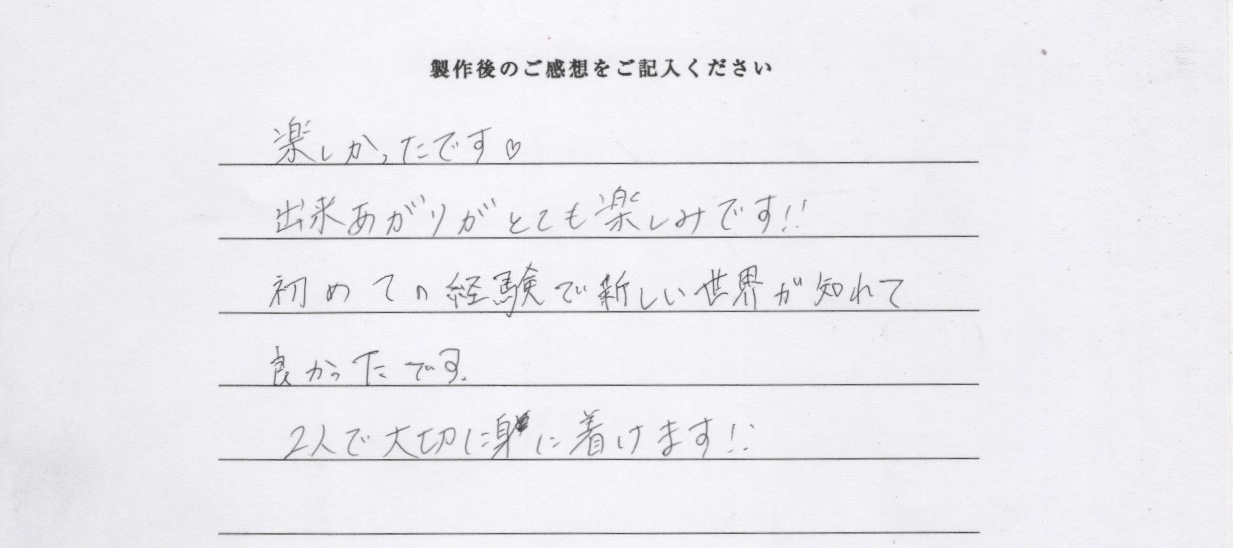 製作後のご感想をご記入ください
楽しかったです♡
出来あがりがとても楽しみです!!
初めての経験で新しい世界が知れて
良かったです.
2人で大切に身に着けます!!